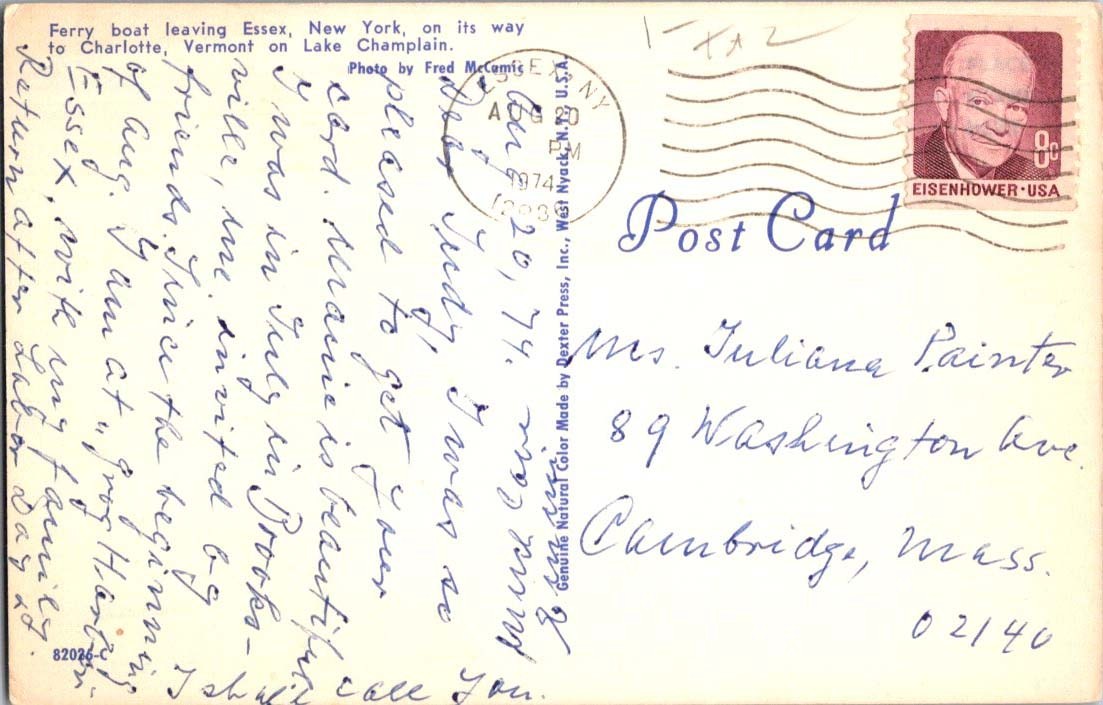 Ferry boat leaving Essex, New York, on its way
to Charlotte, Vermont on Lake Champlain.
Photo by Fred McCamic
ESSEX, NY
AUG 20
PM
1974
EISENHOWER·USA
8c
Post Card
Genuine Natural Color Made by Dexter Press, Inc., West Nyack, N.Y., U.S.A.
Aug 20, 74.
Dear Judy, I was so
pleased to get your
card. Maine is beautiful
I was in July in Brooks-
ville, me. invited by
friends. Since the beginning
of Aug. I am at
Essex, with my family.
Return after Labor Day
I shall call You.
much love
Ms. Juliana Painter
89 Washington Ave.
Cambridge, Mass.
02140
82026-C